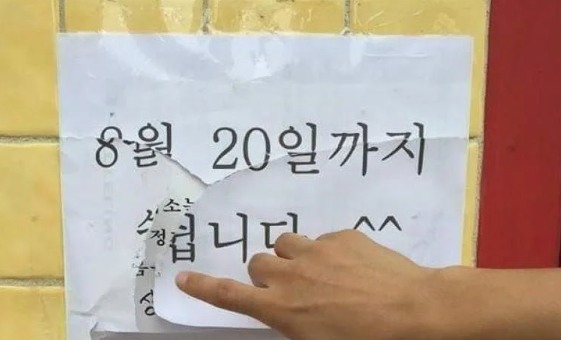 8월 20일까지
쉽니다 ^^